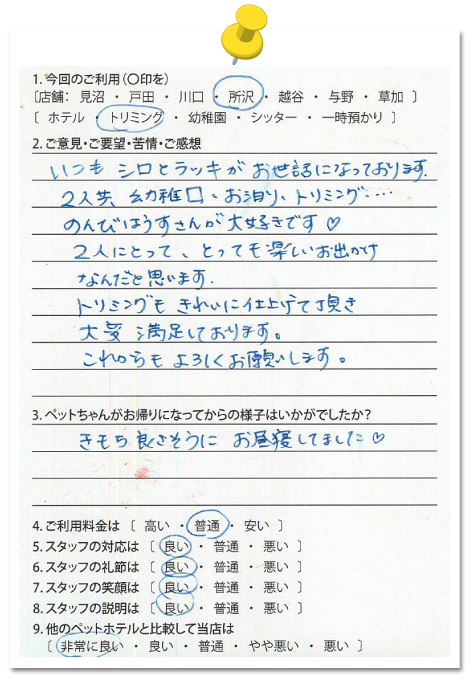 1. 今回のご利用(〇印を)
〔店舗: 見沼 ・ 戸田 ・ 川口 ・ 所沢 ・ 越谷 ・ 与野 ・ 草加 〕
〔 ホテル ・ トリミング ・ 幼稚園 ・ シッター ・ 一時預かり 〕
2. ご意見・ご要望・苦情・ご感想
いつも シロとラッキが お世話になっております.
2人共 幼稚口、お泊り、トリミング…
のんびはうすさんが大好きです♡
2人にとって、とっても楽しいお出かけ
なんだと思います.
トリミングも きれいに仕上げて頂き
大変 満足しております。
これからも よろしくお願いします。
3. ペットちゃんがお帰りになってからの様子はいかがでしたか?
きもち良さそうに お昼寝してました♡
4. ご利用料金は 〔 高い ・ 普通 ・ 安い 〕
5. スタッフの対応は 〔 良い ・ 普通 ・ 悪い 〕
6. スタッフの礼節は 〔 良い ・ 普通 ・ 悪い 〕
7. スタッフの笑顔は 〔 良い ・ 普通 ・ 悪い 〕
8. スタッフの説明は 〔 良い ・ 普通 ・ 悪い 〕
9. 他のペットホテルと比較して当店は
〔 非常に良い ・ 良い ・ 普通 ・ やや悪い ・ 悪い 〕